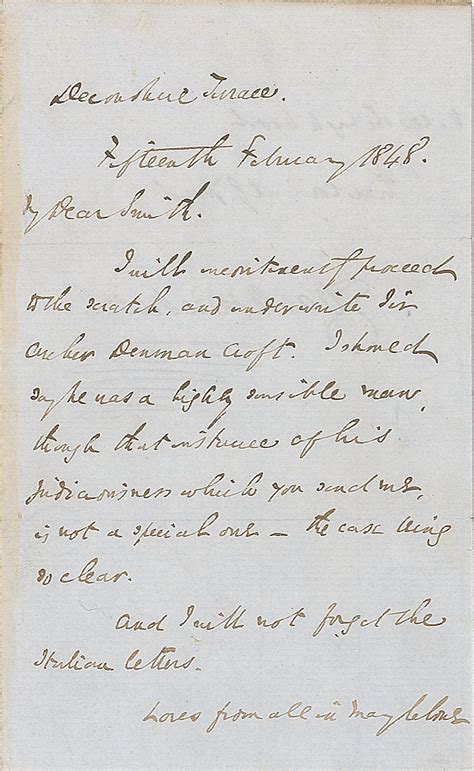 Devonshire Terrace.
Fifteenth February 1848.
My Dear Smith.
I will proceed
to the scratch, and underwrite Sir
Archer Denman Croft. I should
say he was a highly sensible man,
though that instance of his
Judiciousness which you send me,
is not a special one – the case being
so clear.
And I will not forget the
Italian letters.
Loves from all in Marylebone